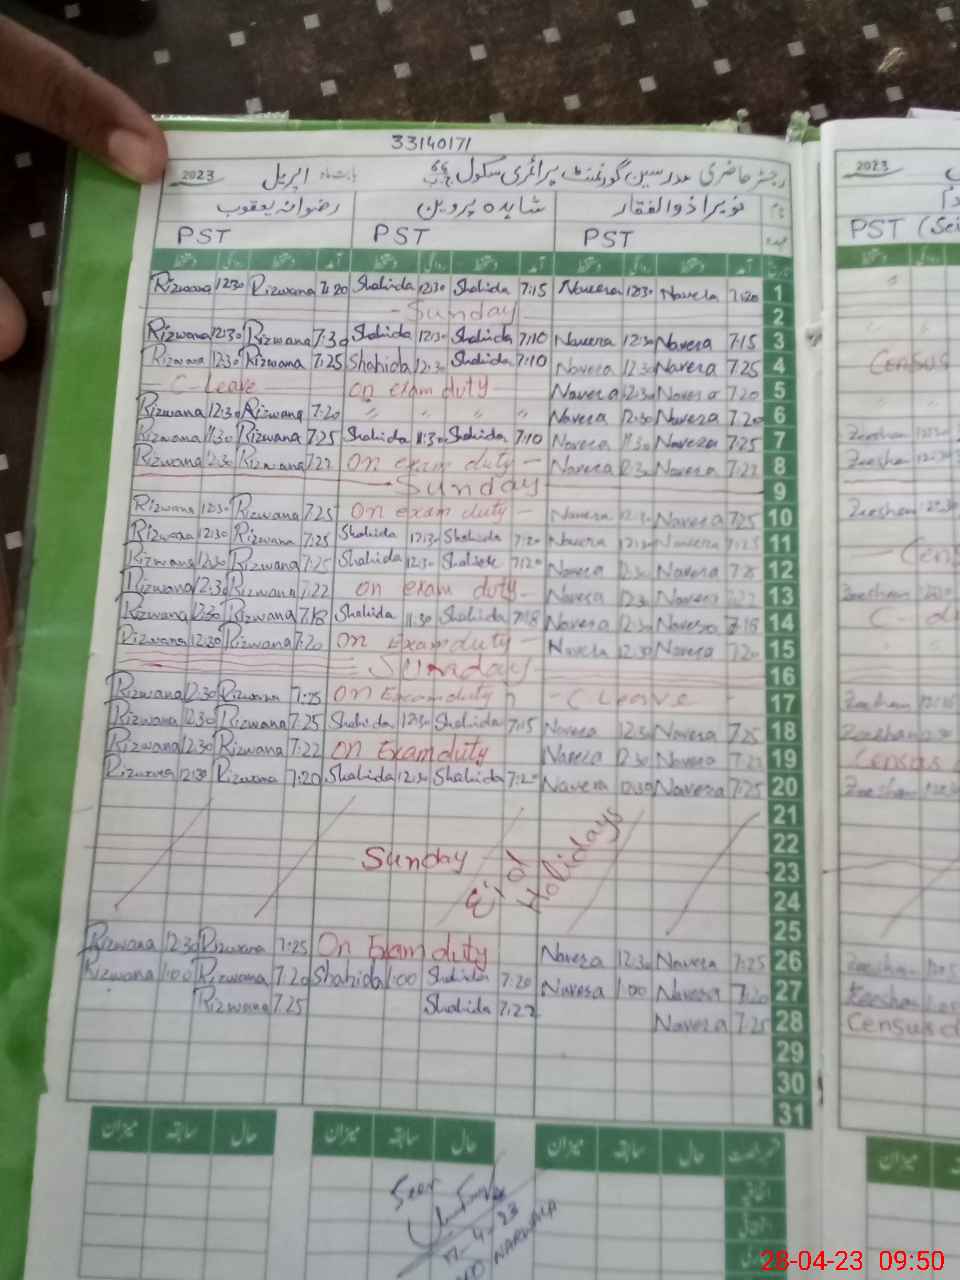 33140171
رجسٹر حاضری مدرسین گورنمنٹ پرائمری سکول بابت ماہ اپریل 2023
نام نویرا ذوالفقار شاہدہ پروین رضوانہ یعقوب
عہدہ
PST PST PST
Rizwana 12:30 Rizwana 7:20 Shahida 12:30 Shahida 7:15 Naveera 12:30 Navera 7:20 1
Sunday 2
Rizwana 12:30 Rizwana 7:30 Shahida 12:30 Shahida 7:10 Naveera 12:30 Navera 7:15 3
Rizwana 12:30 Rizwana 7:25 Shahida 12:30 Shahida 7:10 Navera 12:30 Navera 7:25 4
C-Leave On exam duty Navera 12:30 Navera 7:20 5
Rizwana 12:30 Rizwana 7:20 " " " " Navera 12:30 Navera 7:20 6
Rizwana 11:30 Rizwana 7:25 Shahida 11:30 Shahida 7:10 Navera 11:30 Navera 7:25 7
Rizwana 12:30 Rizwana 7:22 On exam duty Navera 12:30 Navera 7:22 8
Sunday 9
Rizwana 12:30 Rizwana 7:25 On exam duty Navera 12:30 Navera 7:25 10
Rizwana 12:30 Rizwana 7:25 Shahida 12:30 Shahida 7:20 Navera 12:30 Navera 7:25 11
Rizwana 12:30 Rizwana 7:25 Shahida 12:30 Shahida 7:20 Navera 12:30 Navera 7:25 12
Rizwana 12:30 Rizwana 7:22 On exam duty Navera 12:30 Navera 7:22 13
Rizwana 12:30 Rizwana 7:18 Shahida 11:30 Shahida 7:18 Navera 12:30 Navera 7:18 14
Rizwana 12:30 Rizwana 7:20 On Exam duty Navera 12:30 Navera 7:20 15
Sunday 16
Rizwana 12:30 Rizwana 7:25 On Exam duty C Leave 17
Rizwana 12:30 Rizwana 7:25 Shahida 12:30 Shahida 7:15 Navera 12:30 Navera 7:25 18
Rizwana 12:30 Rizwana 7:22 On Exam duty Navera 12:30 Navera 7:22 19
Rizwana 12:30 Rizwana 7:20 Shahida 12:30 Shahida 7:20 Navera 12:30 Navera 7:25 20
21
22
Sunday 23
Eid Holidays 24
25
Rizwana 12:30 Rizwana 7:25 On Exam duty Navera 12:30 Navera 7:25 26
Rizwana 1:00 Rizwana 7:20 Shahida 1:00 Shahida 7:20 Navera 1:00 Navera 7:20 27
Rizwana 7:25 Shahida 7:22 Navera 7:25 28
29
30
31
میزان سابقہ حال میزان سابقہ حال میزان سابقہ حال
Seen
17-4-23
NARWALA
2023
PST
Census
Zeeshan 12:30
Zeeshan
Zeeshan 12:30
Zeeshan
Zeeshan
Zeeshan
Census
Zeeshan
Zeeshan
Zeeshan
Census
میزان
28-04-23 09:50